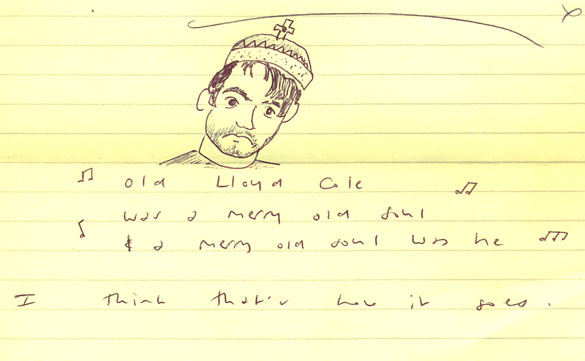 Old Lloyd Cole
was a merry old soul
& a merry old soul was he
I think that's how it goes.